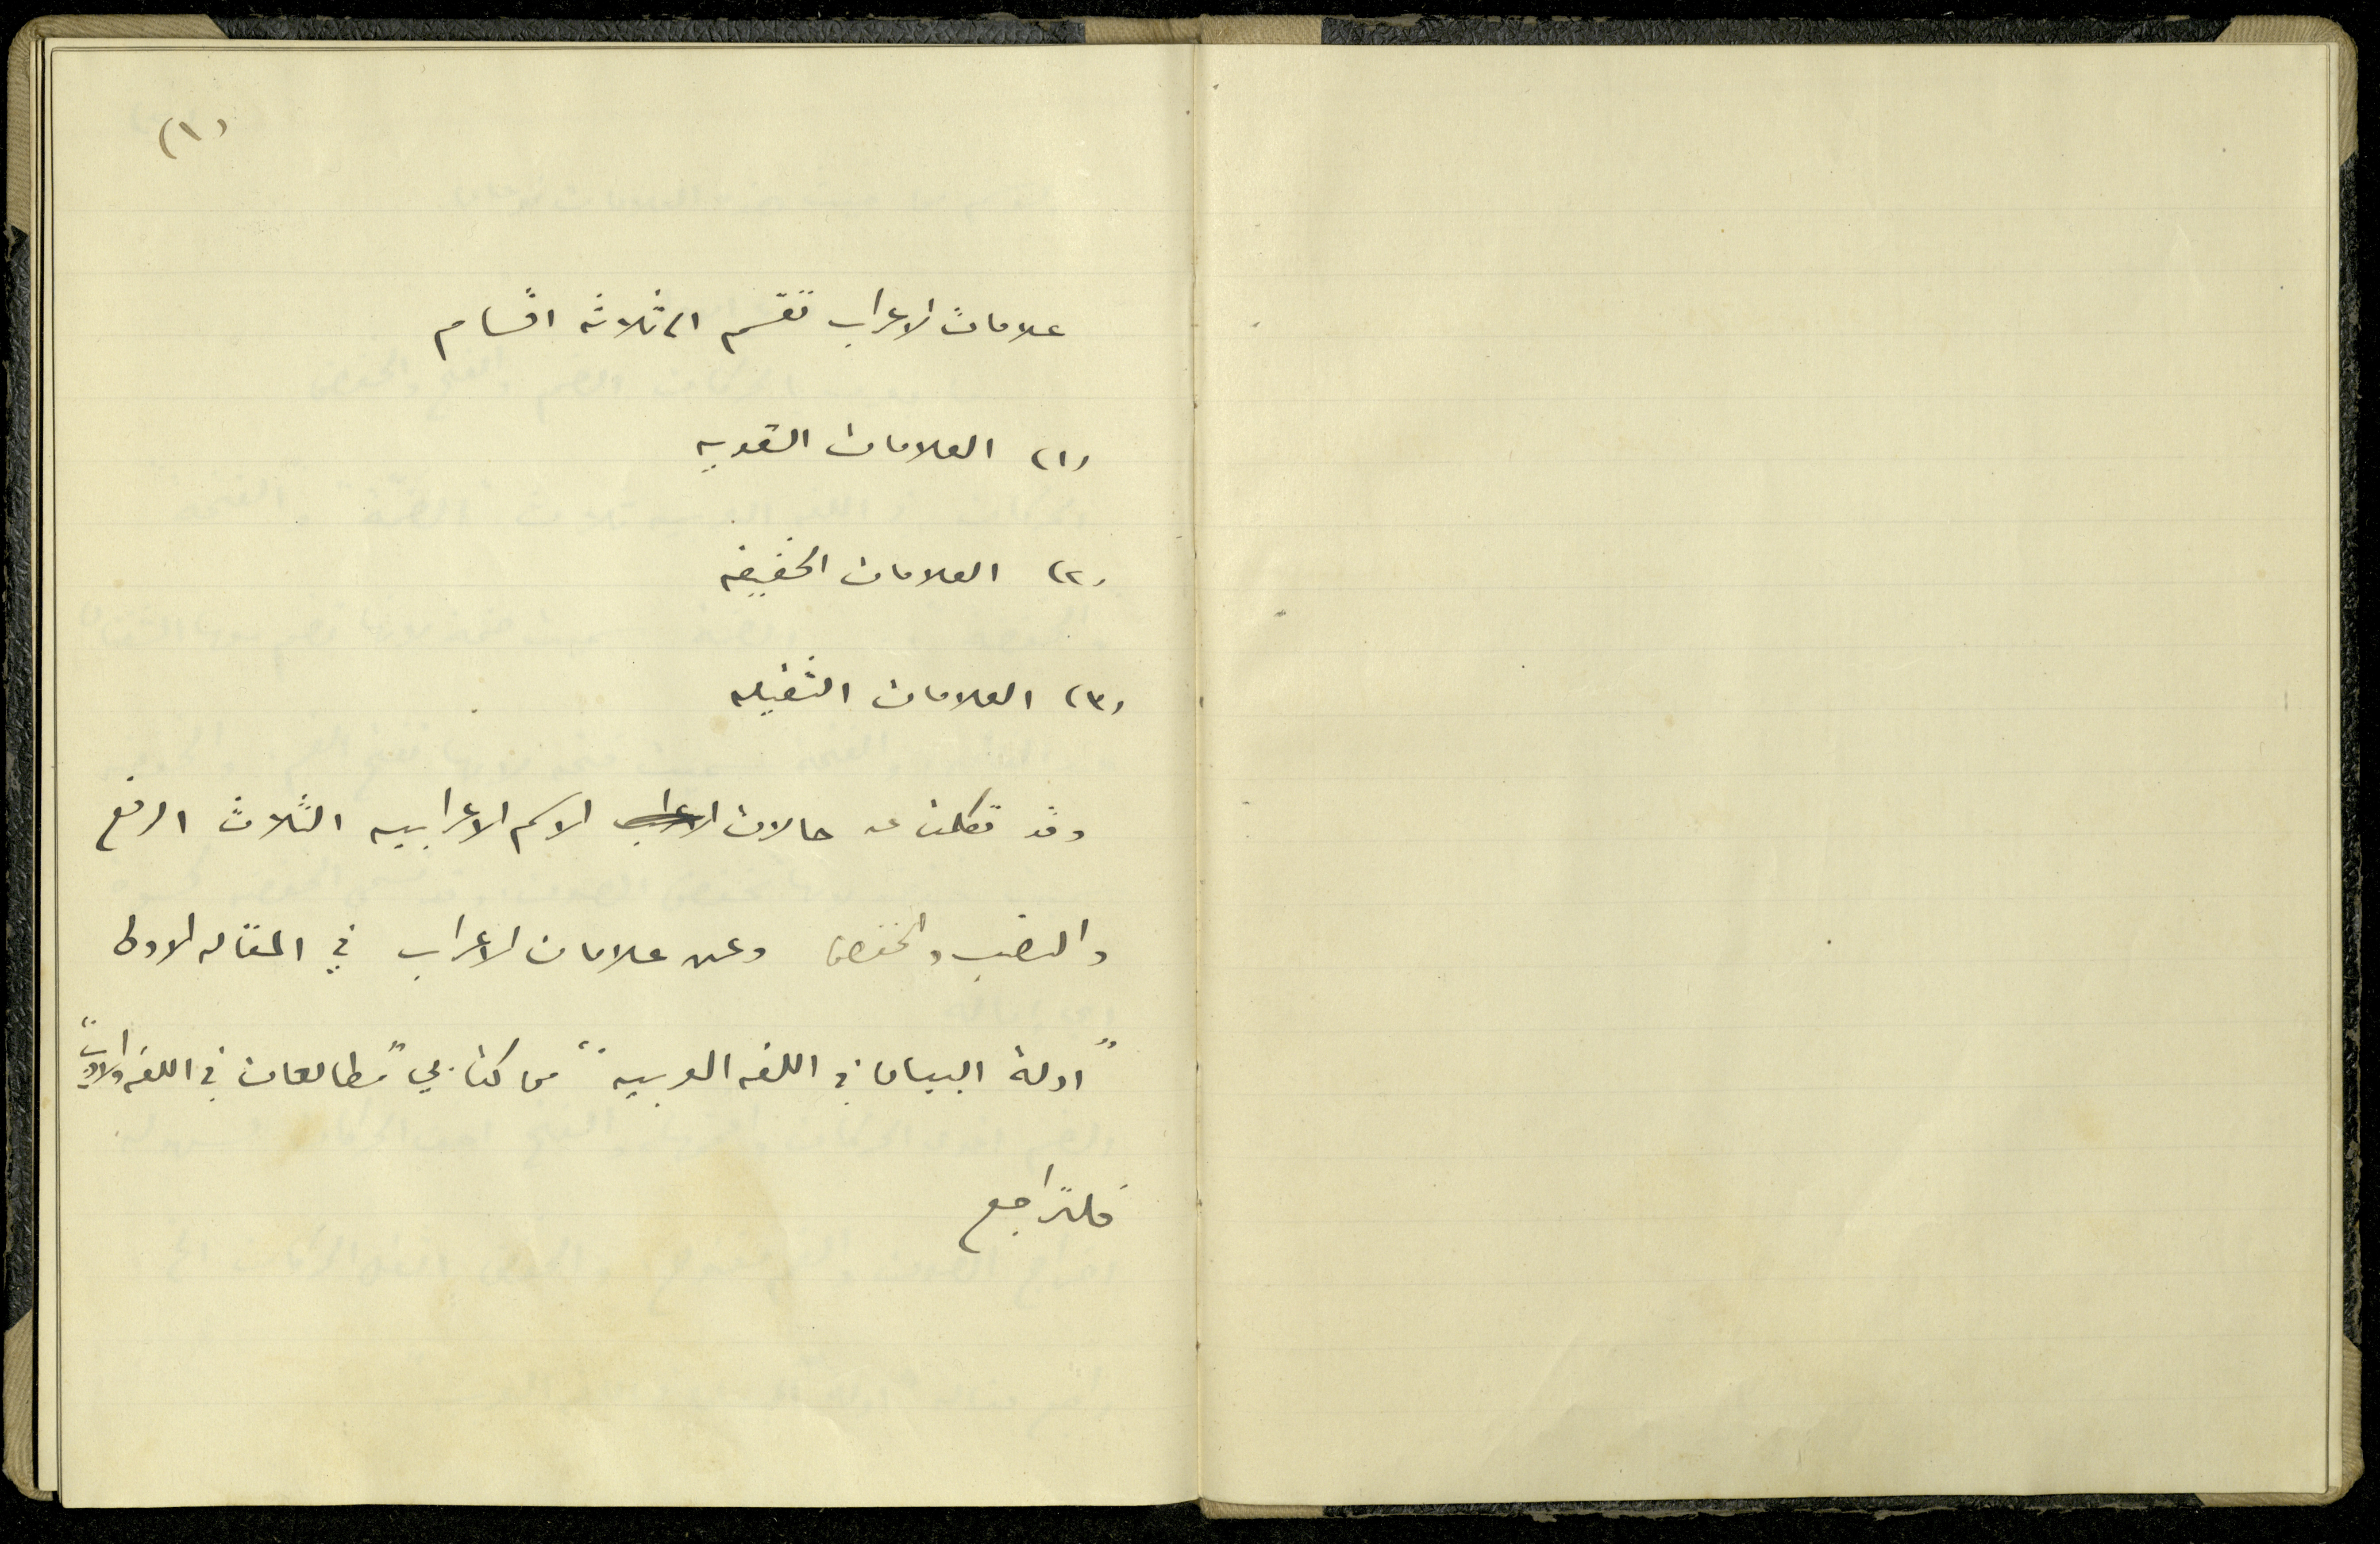 (١)
علامات الاعراب تقسم الى ثلاثه اقسام
(١) العلامات القويه
(٢) العلامات الخفيفه
(٣) العلامات الثقيله
وقد تكلمت عن حالات الاعراب الاسم الاعرابيه الثلاث الرفع
والنصب والخفض وعن علامات الاعراب في المقاله الاولى
"ادلة البيان في اللغه العربيه" من كتابي "مطالعات في اللغه والادب"
فلتراجع